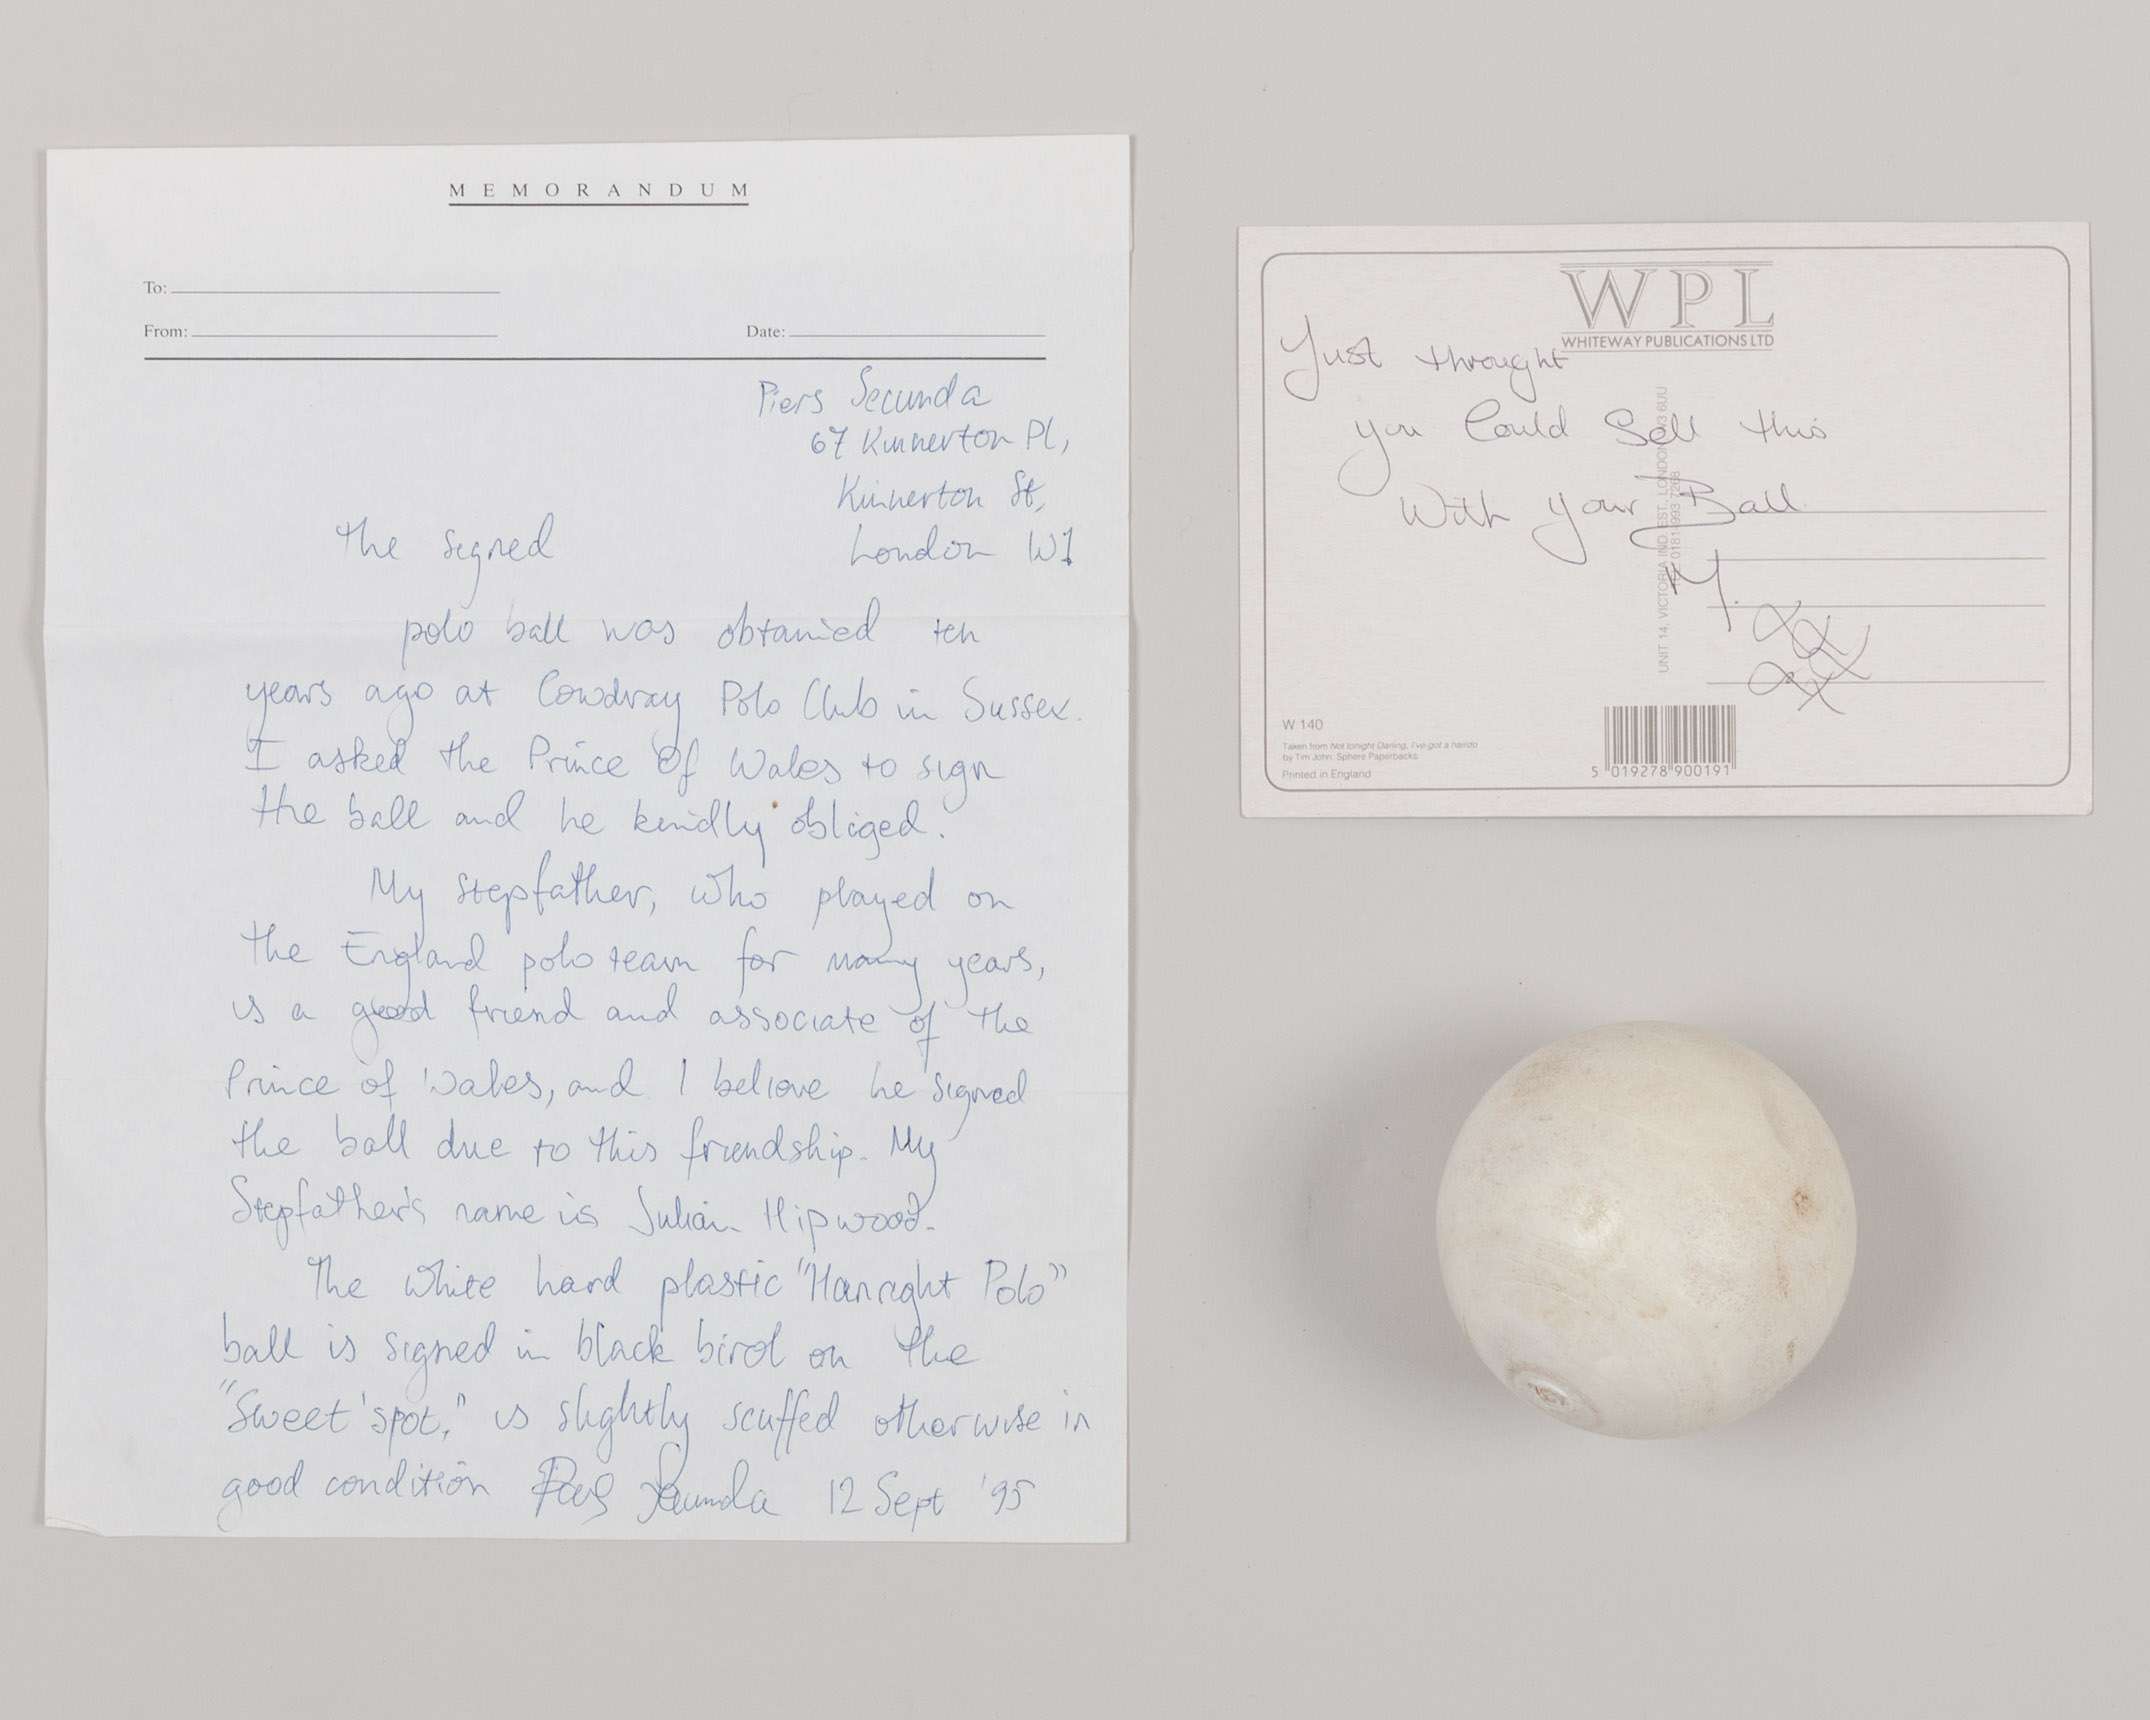 MEMORANDUM
To:
From:
Date:
Piers Secunda
67 Kinnerton Pl,
Kinnerton St,
London W1
The signed
polo ball was obtained ten
years ago at Cowdray Polo Club in Sussex.
I asked the Prince of Wales to sign
the ball and he kindly obliged.
My stepfather, who played on
the England polo team for many years,
is a good friend and associate of the
Prince of Wales, and I believe he signed
the ball due to this friendship. My
Stepfather's name is Julian Hipwood.
The white hard plastic "Hanright Polo"
ball is signed in black bird on the
"Sweet spot," is slightly scuffed otherwise in
good condition Piers Secunda 12 Sept '95
WPL
WHITEWAY PUBLICATIONS LTD
Just throught
you Could Sell this
With your Ball
M.
xxxx
UNIT 14, VICTORIA IND. EST., LONDON W3 6UU
0181 993 7268
W 140
Taken from Not tonight Darling, I've got a hairdo
by Tim John. Sphere Paperbacks
Printed in England
5 019278 900191